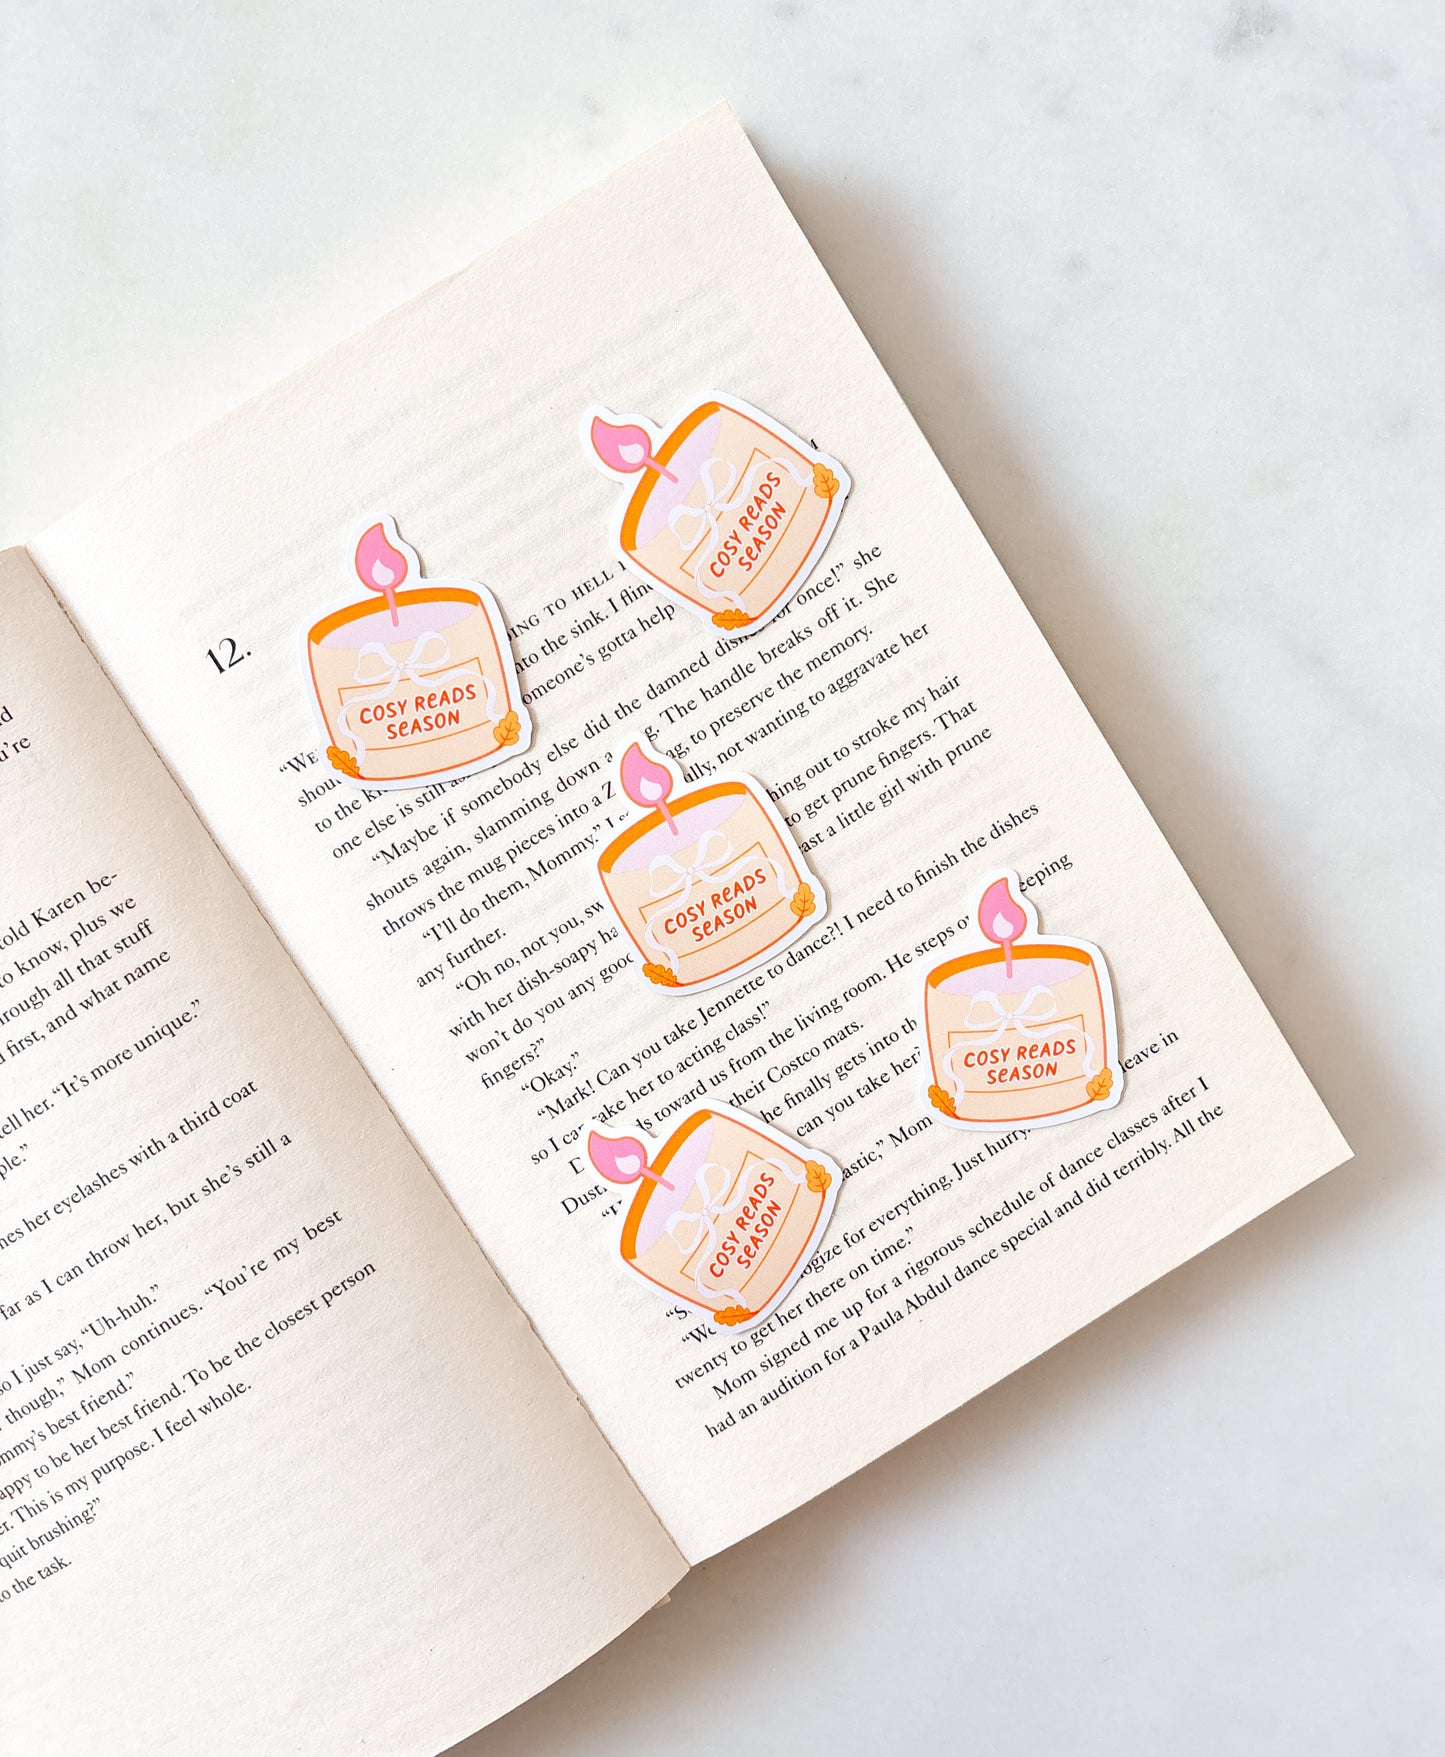 d
u're
told Karen be-
to know, plus we
hrough all that stuff
l first, and what name
tell her. "It's more unique."
ple."
nes her eyelashes with a third coat
far as I can throw her, but she's still a
so I just say, "Uh-huh."
though," Mom continues. "You're my best
ommy's best friend."
appy to be her best friend. To be the closest person
er. This is my purpose. I feel whole.
quit brushing?"
to the task.
12.
"WE DING TO HELL I
shou nto the sink. I flinc
to the ki omeone's gotta help
one else is still as
"Maybe if somebody else did the damned dishes for once!" she
shouts again, slamming down a g. The handle breaks off it. She
throws the mug pieces into a Z ag, to preserve the memory.
"I'll do them, Mommy." I s lly, not wanting to aggravate her
any further.
"Oh no, not you, sw hing out to stroke my hair
with her dish-soapy ha to get prune fingers. That
won't do you any good east a little girl with prune
fingers?"
"Okay."
"Mark! Can you take Jennette to dance?! I need to finish the dishes
so I can take her to acting class!"
D ds toward us from the living room. He steps o eeping
Dust their Costco mats.
he finally gets into th
can you take her?
astic," Mom leave in
ogize for everything. Just hurry.
"We
twenty to get her there on time."
Mom signed me up for a rigorous schedule of dance classes after I
had an audition for a Paula Abdul dance special and did terribly. All the
COSY READS
SEASON
COSY READS
SEASON
COSY READS
SEASON
COSY READS
SEASON
COSY READS
SEASON